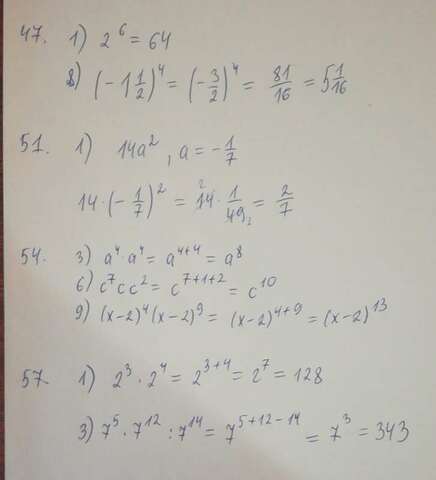 47. 1) 2^6 = 64
8) (-1 1/2)^4 = (-3/2)^4 = 81/16 = 5 1/16
51. 1) 14a^2, a = -1/7
14·(-1/7)^2 = 14·1/49 = 2/7
54. 3) a^4·a^4 = a^{4+4} = a^8
6) c^7cc^2 = c^{7+1+2} = c^{10}
9) (x-2)^4(x-2)^9 = (x-2)^{4+9} = (x-2)^{13}
57. 1) 2^3·2^4 = 2^{3+4} = 2^7 = 128
3) 7^5·7^{12}:7^{14} = 7^{5+12-14} = 7^3 = 343